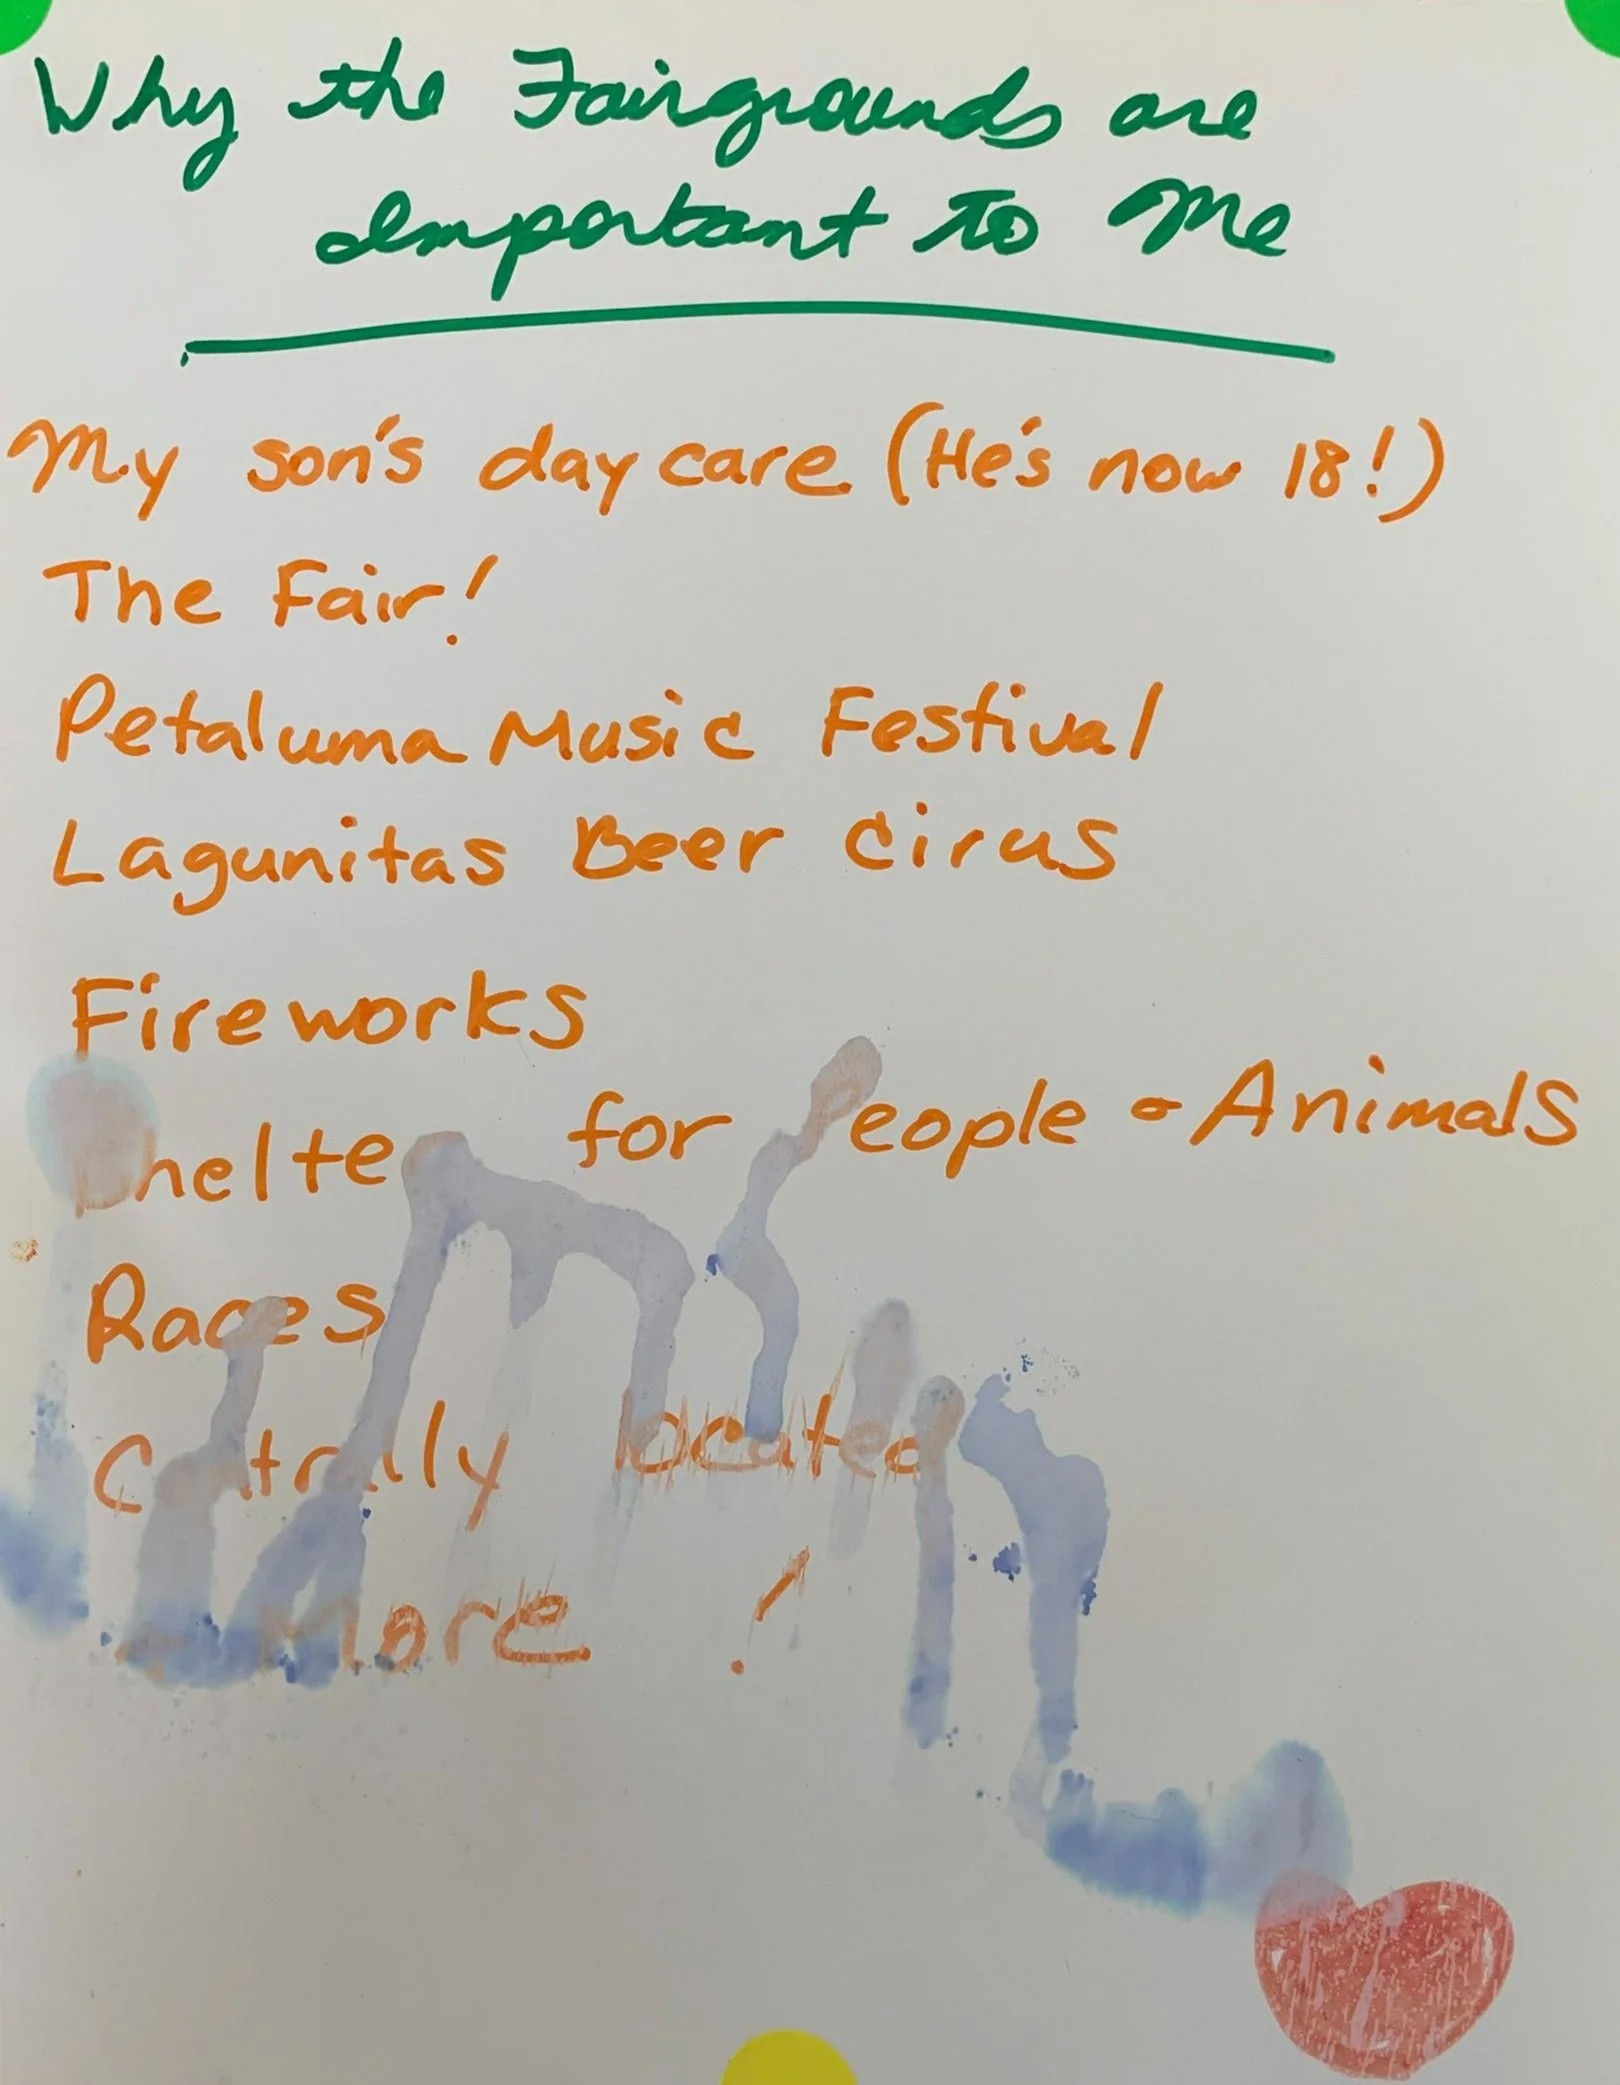 Why the Fairgrounds are
Important to Me
My son's day care (He's now 18!)
The Fair!
Petaluma Music Festival
Lagunitas Beer Cirus
Fireworks
Shelter for People - Animals
Races
Centrally located
More !